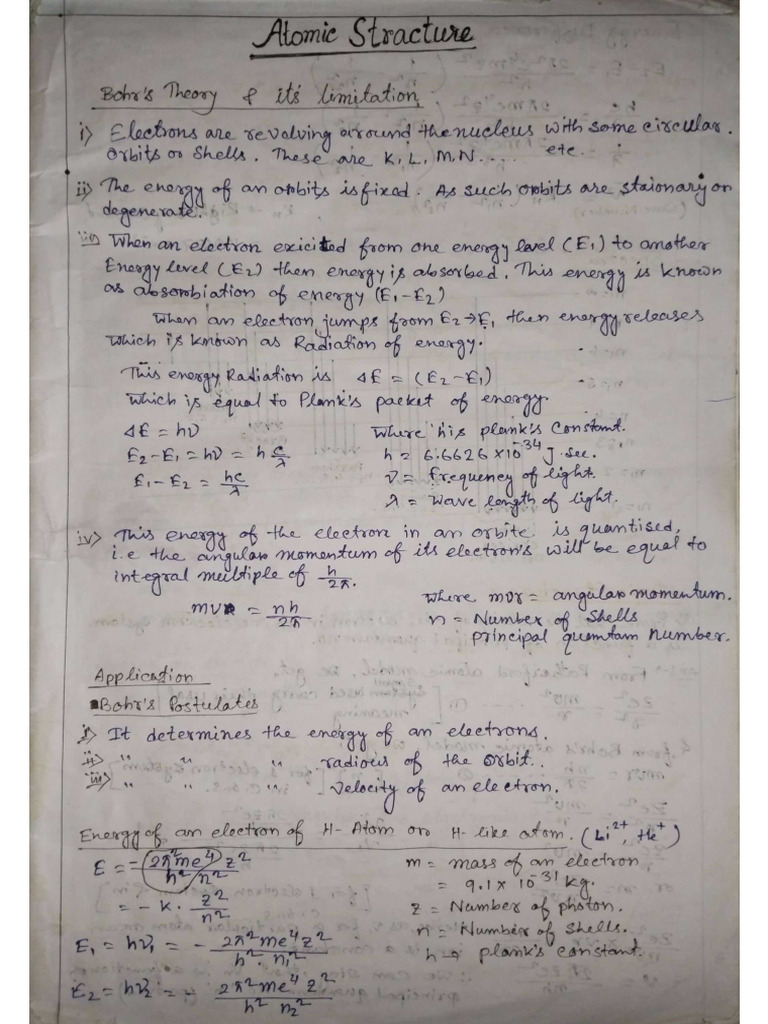 Atomic Stracture
Bohr's Theory & its limitation,
i) Electrons are revolving around the nucleus with some circular.
orbits or shells. These are K, L, M, N..... etc.
ii) The energy of an orbits is fixed. As such orbits are staionary or
degenerate.
iii) When an electron exicited from one energy level (E₁) to another
Energy level (E₂) then energy is absorbed. This energy is known
as absorbiation of energy (E₁-E₂)
When an electron jumps from E₂→E₁ then energy releases
which is known as Radiation of energy.
This energy Radiation is ΔE = (E₂-E₁)
which is equal to Plank's packet of energy
ΔE = hν Where 'h is plank's Constant.
E₂-E₁ = hν = h c/λ h = 6.6626 × 10⁻³⁴ J. sec.
E₁-E₂ = hc/λ ν = frequency of light.
λ = wave length of light.
iv) This energy of the electron in an orbite is quantised,
i.e the angular momentum of its electron's will be equal to
integral multiple of h/2π.
mvr = nh/2π where mvr = angular momentum.
n = Number of Shells
principal quantam number.
Application
Bohr's Postulates
i) It determines the energy of an electrons.
ii) " " " radious of the orbit..
iii) " " " velocity of an electron.
Energy of an electron of H-Atom or H-like atom. (Li²⁺, He⁺)
E = - 2π²me⁴/h² z²/n² m = mass of an electron
= - K . z²/n² = 9.1 × 10⁻³¹ kg.
z = Number of photon.
n = Number of shells.
E₁ = hν₁ = - 2π²me⁴z²/h². n₁² h → plank's constant.
E₂ = hν₂ = - 2π²me⁴z²/h² n₂²